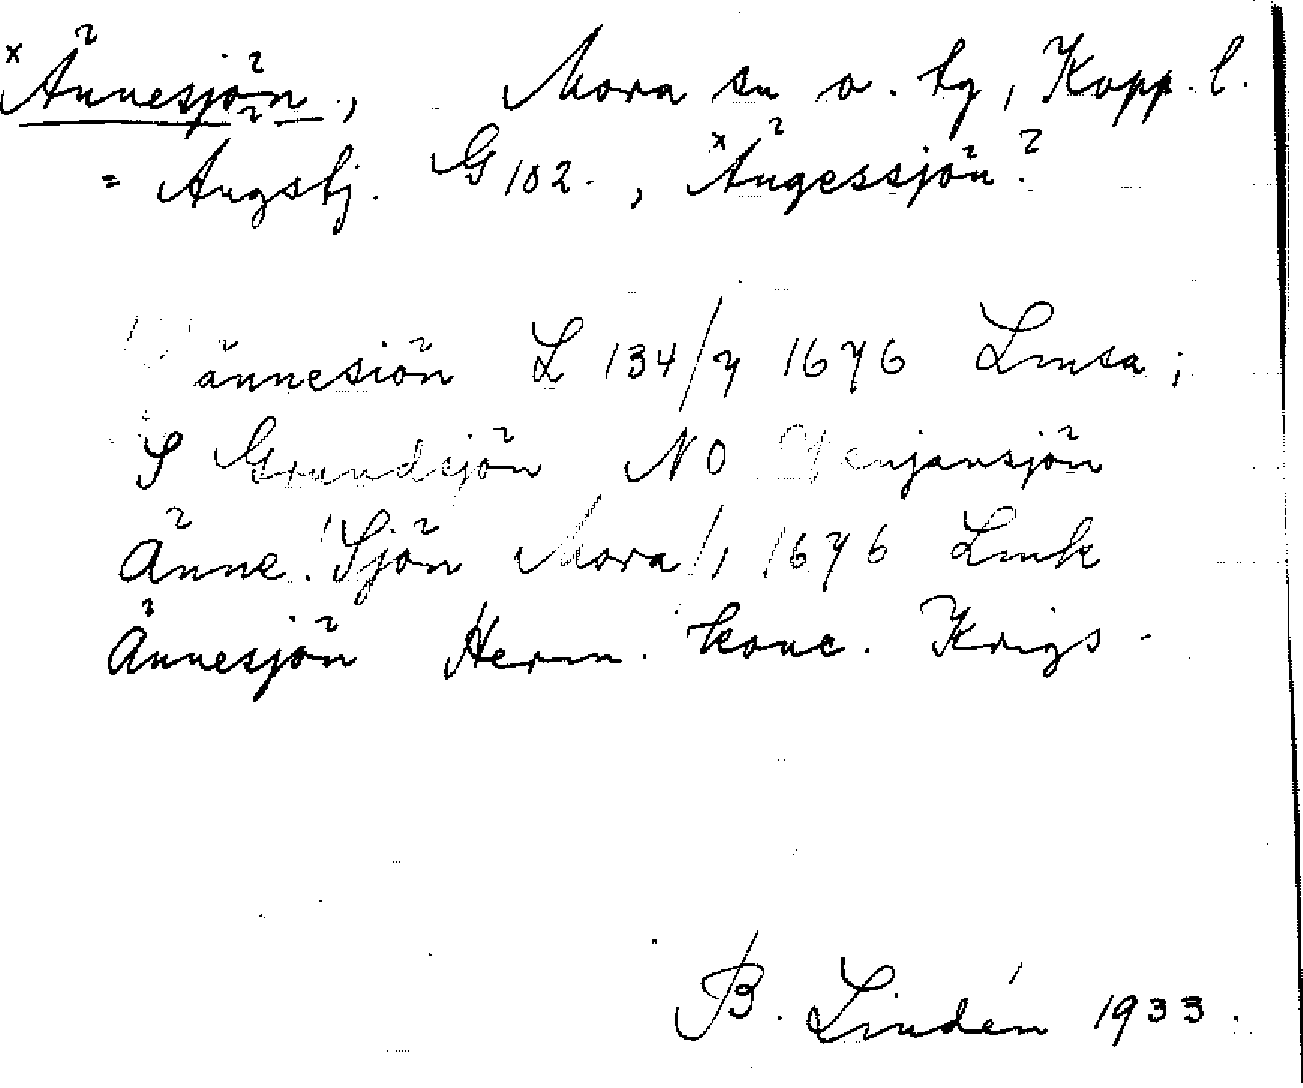 ×Ännesjön, Mora sn o. tg, Kopp. l.
= Angstj. G 102., ×Ängessjön?
ännesiön L 134/7 1676 Lmsa;
S Grundsjön NO Venjansjön
Änne Sjön Mora /1 1676 Lmk
Ännesjön Herm. konc. Krigs-
B. Lindén 1933.